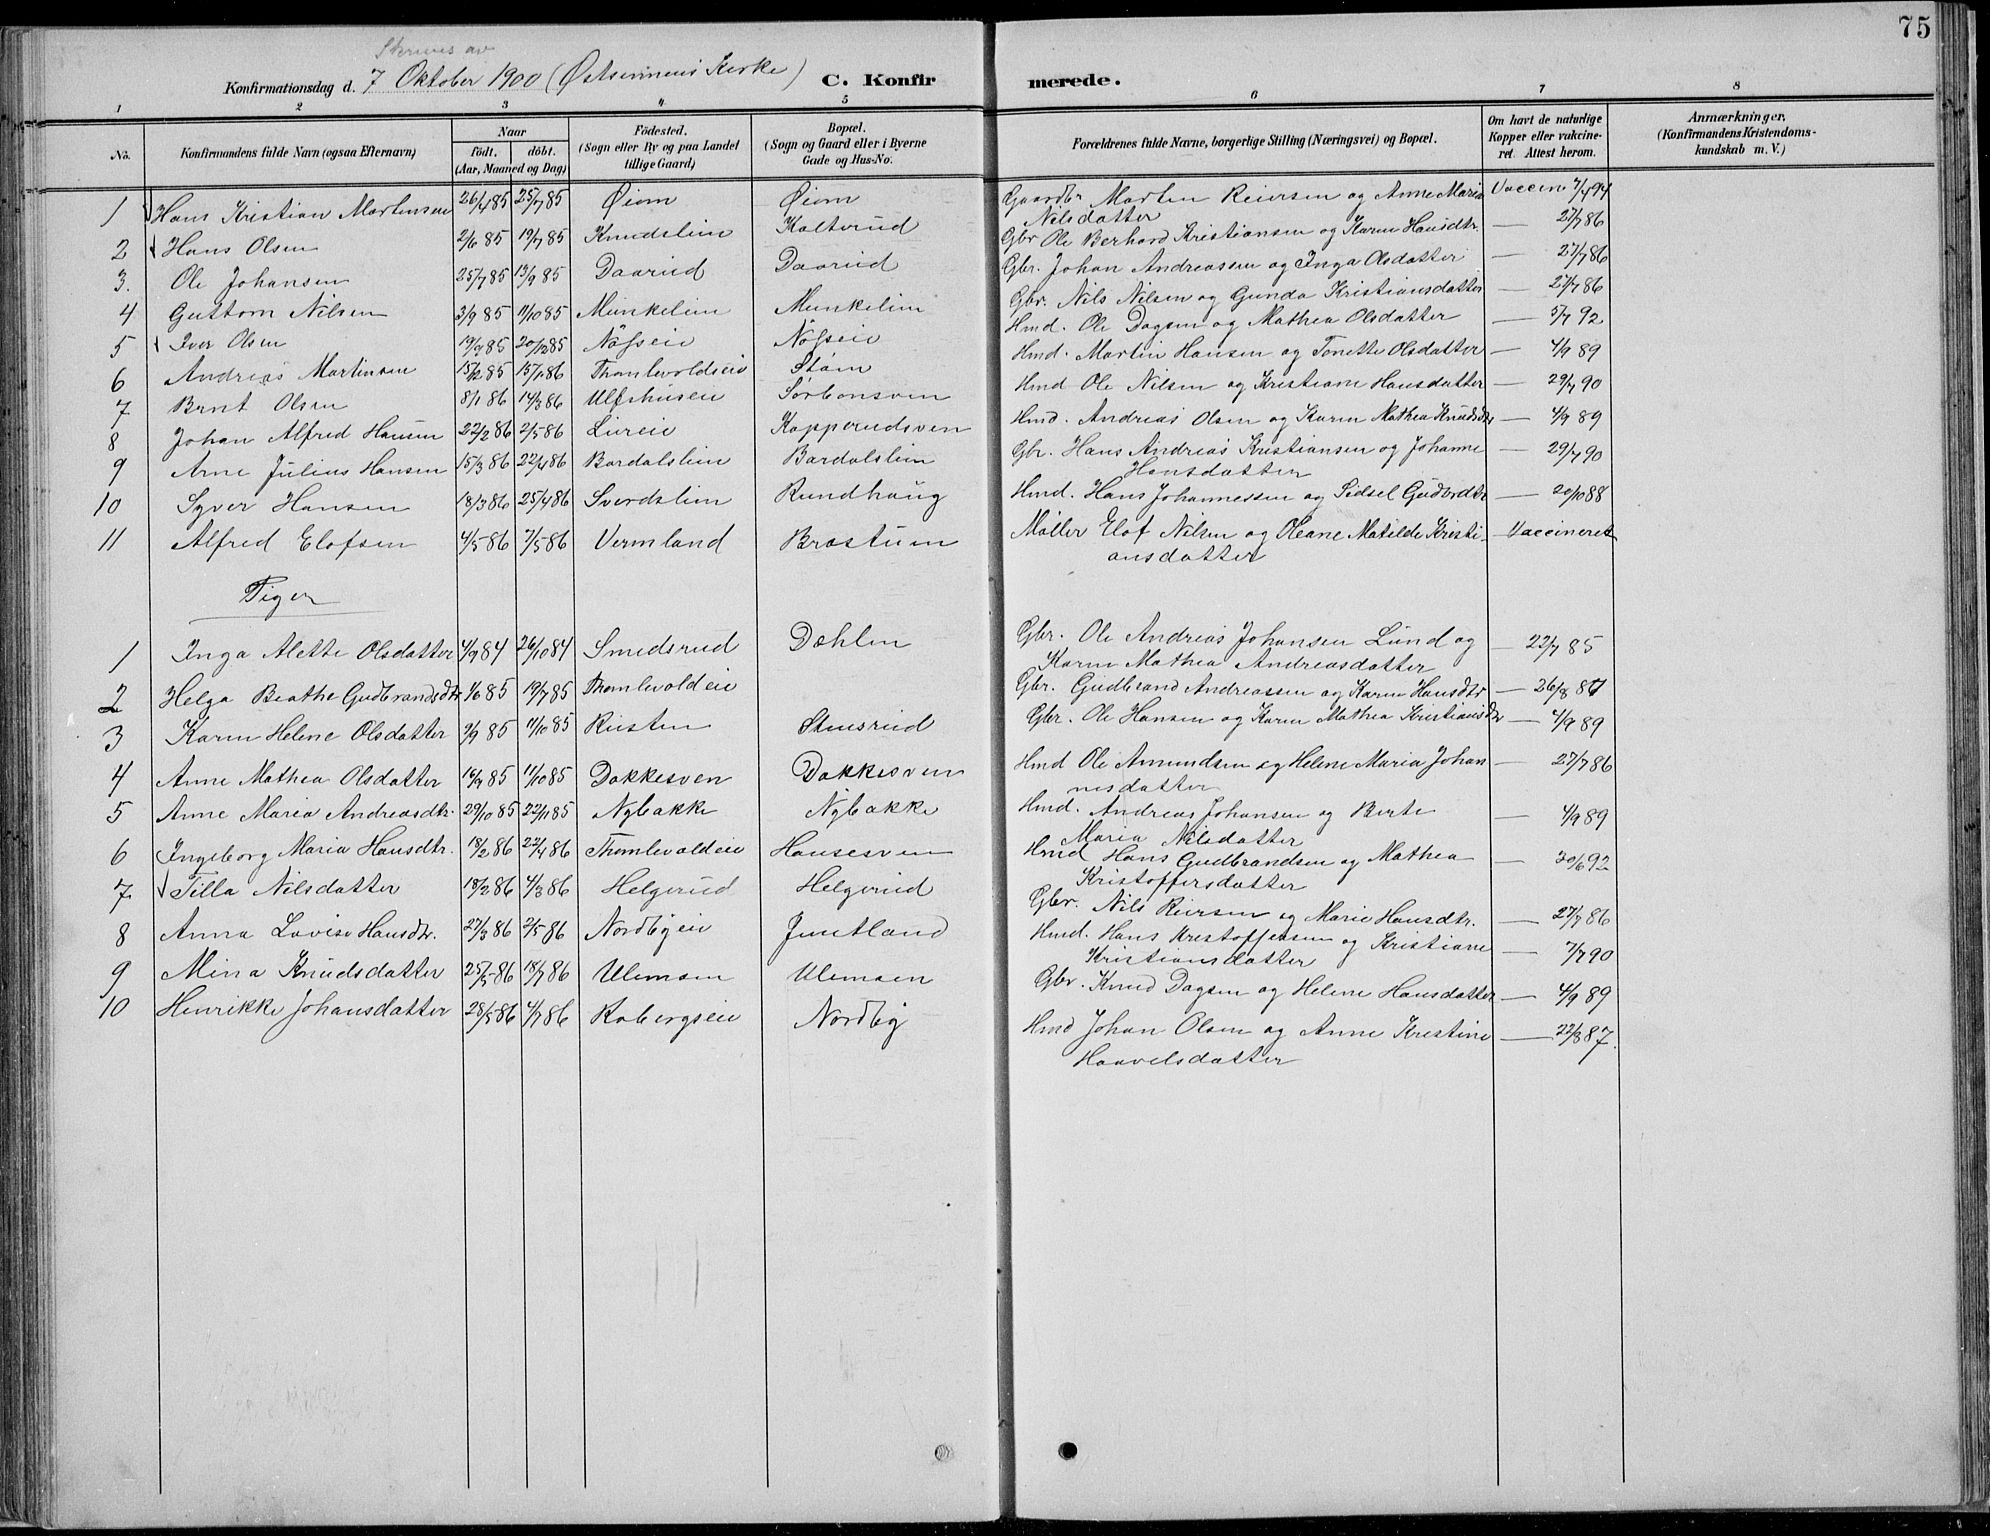 75
Skrives av
Konfirmationsdag d. 7 Oktober 1900 (Østsinnens Kirke) C. Konfirmerede.
1 2 3 4 5 6 7 8
No. Konfirmandens fulde Navn (ogsaa Efternavn) Naar født. døbt. (Aar, Maaned og Dag) Födested. (Sogn eller By og paa Landet tillige Gaard) Bopæl. (Sogn og Gaard eller i Byerne Gade og Hus-No. Forældrenes fulde Navne, borgerlige Stilling (Næringsvei) og Bopæl. Om havt de naturlige Kopper eller vaccineret. Attest herom. Anmærkninger. (Konfirmandens Kristendomskundskab m. V.)
1 Hans Kristian Martinsen 26/4 85 25/7 85 Øiom Øiom Gaardbr Martin Reiersen og Anne Maria Nilsdatter Vaccin. 7/4 94
2 Hans Olsen 2/6 85 19/7 85 Knudslien Kolterud Gbr Ole Berhard Kristiansen og Karen Hansdtr. — 27/7 86
3. Ole Johansen 25/7 85 13/9 85 Daarud Daarud Gbr. Johan Andreassen og Inga Olsdatter — 27/7 86
4 Guttorm Nilsen 3/9 85 11/10 85 Munkelien Munkelien Gbr. Nils Nilsen og Gunda Kristiansdatter — 27/7 86
5 Iver Olsen 19/9 85 20/12 85 Nøsseie Nøsseie Hmd. Ole Dagsen og Mathea Olsdatter — 5/7 92
6 Andreas Martinsen 15/12 85 15/1 86 Thomlevoldseie Støm Hmd. Martin Hansen og Tonette Olsdatter — 4/9 89
7 Brnt Olsen 8/1 86 14/3 86 Ulfshuseie Sørbonsven Hmd Ole Nilsen og Kristiane Hansdatter — 29/7 90
8 Johan Alfred Hansen 22/2 86 2/5 86 Lieeie Kopperudsven Hmd. Andreas Olsen og Karen Mathea Knudsdtr — 4/9 89
9 Arne Julius Hansen 15/3 86 22/4 86 Bardalslien Bardalslien Gbr. Hans Andreas Kristiansen og Johanne Hansdatter — 29/7 90
10 Syver Hansen 18/3 86 25/4 86 Sverdslien Rundhaug Hmd. Hans Johannessen og Sidsel Gudbrdtr — 20/10 88
11 Alfred Elofsen 4/5 86 7/5 86 Vermland Brastum Møller Elof Nilsen og Oleane Matilde Kristiansdatter — Vaccineret
Piger
1 Inga Alette Olsdatter 4/9 84 26/10 84 Smedsrud Dæhlen Gbr. Ole Andreas Johansen Lund og Karen Mathea Andreasdatter — 22/7 85
2 Helga Beathe Gudbrandsdtr 1/6 85 19/7 85 Thomlevoldeie Gbr. Gudbrand Andreassen og Karen Hansdtr — 26/8 87
3 Karen Helene Olsdatter 9/9 85 11/10 85 Rusten Stensrud Gbr. Ole Hansen og Karen Mathea Kristiansdtr — 4/9 89
4 Anne Mathea Olsdatter 16/9 85 11/10 85 Dokkesven Dokkesven Hmd Ole Amundsen og Helene Maria Johannesdatter — 27/7 86
5 Anne Maria Andreasdtr. 29/10 85 22/11 85 Nybakke Nybakke Hmd. Andreas Johansen og Berte Maria Nilsdatter — 4/9 89
6 Ingeborg Maria Hansdtr. 18/2 86 22/4 86 Thomlevoldeie Hansesven Hmd Hans Gudbrandsen og Mathea Kristoffersdatter — 30/6 92
7 Tilla Nilsdatter 18/2 86 4/3 86 Helgerud Helgerud Gbr. Nils Reiersen og Marie Hansdtr. — 27/7 86
8 Anna Lovise Hansdtr. 27/3 86 2/5 86 Nordbyeie Juutland Hmd. Hans Kristoffersen og Kristiane Kristiansdatter — 7/7 90
9 Mina Knudsdatter 25/5 86 18/7 86 Ulimoen Ulimoen Gbr. Knud Dagsen og Helene Hansdatter — 4/9 89
10 Henrikke Johansdatter 28/5 86 4/7 86 Kobergseie Nordby Hmd Johan Olsen og Anne Kristine Haavelsdatter — 22/8 87.